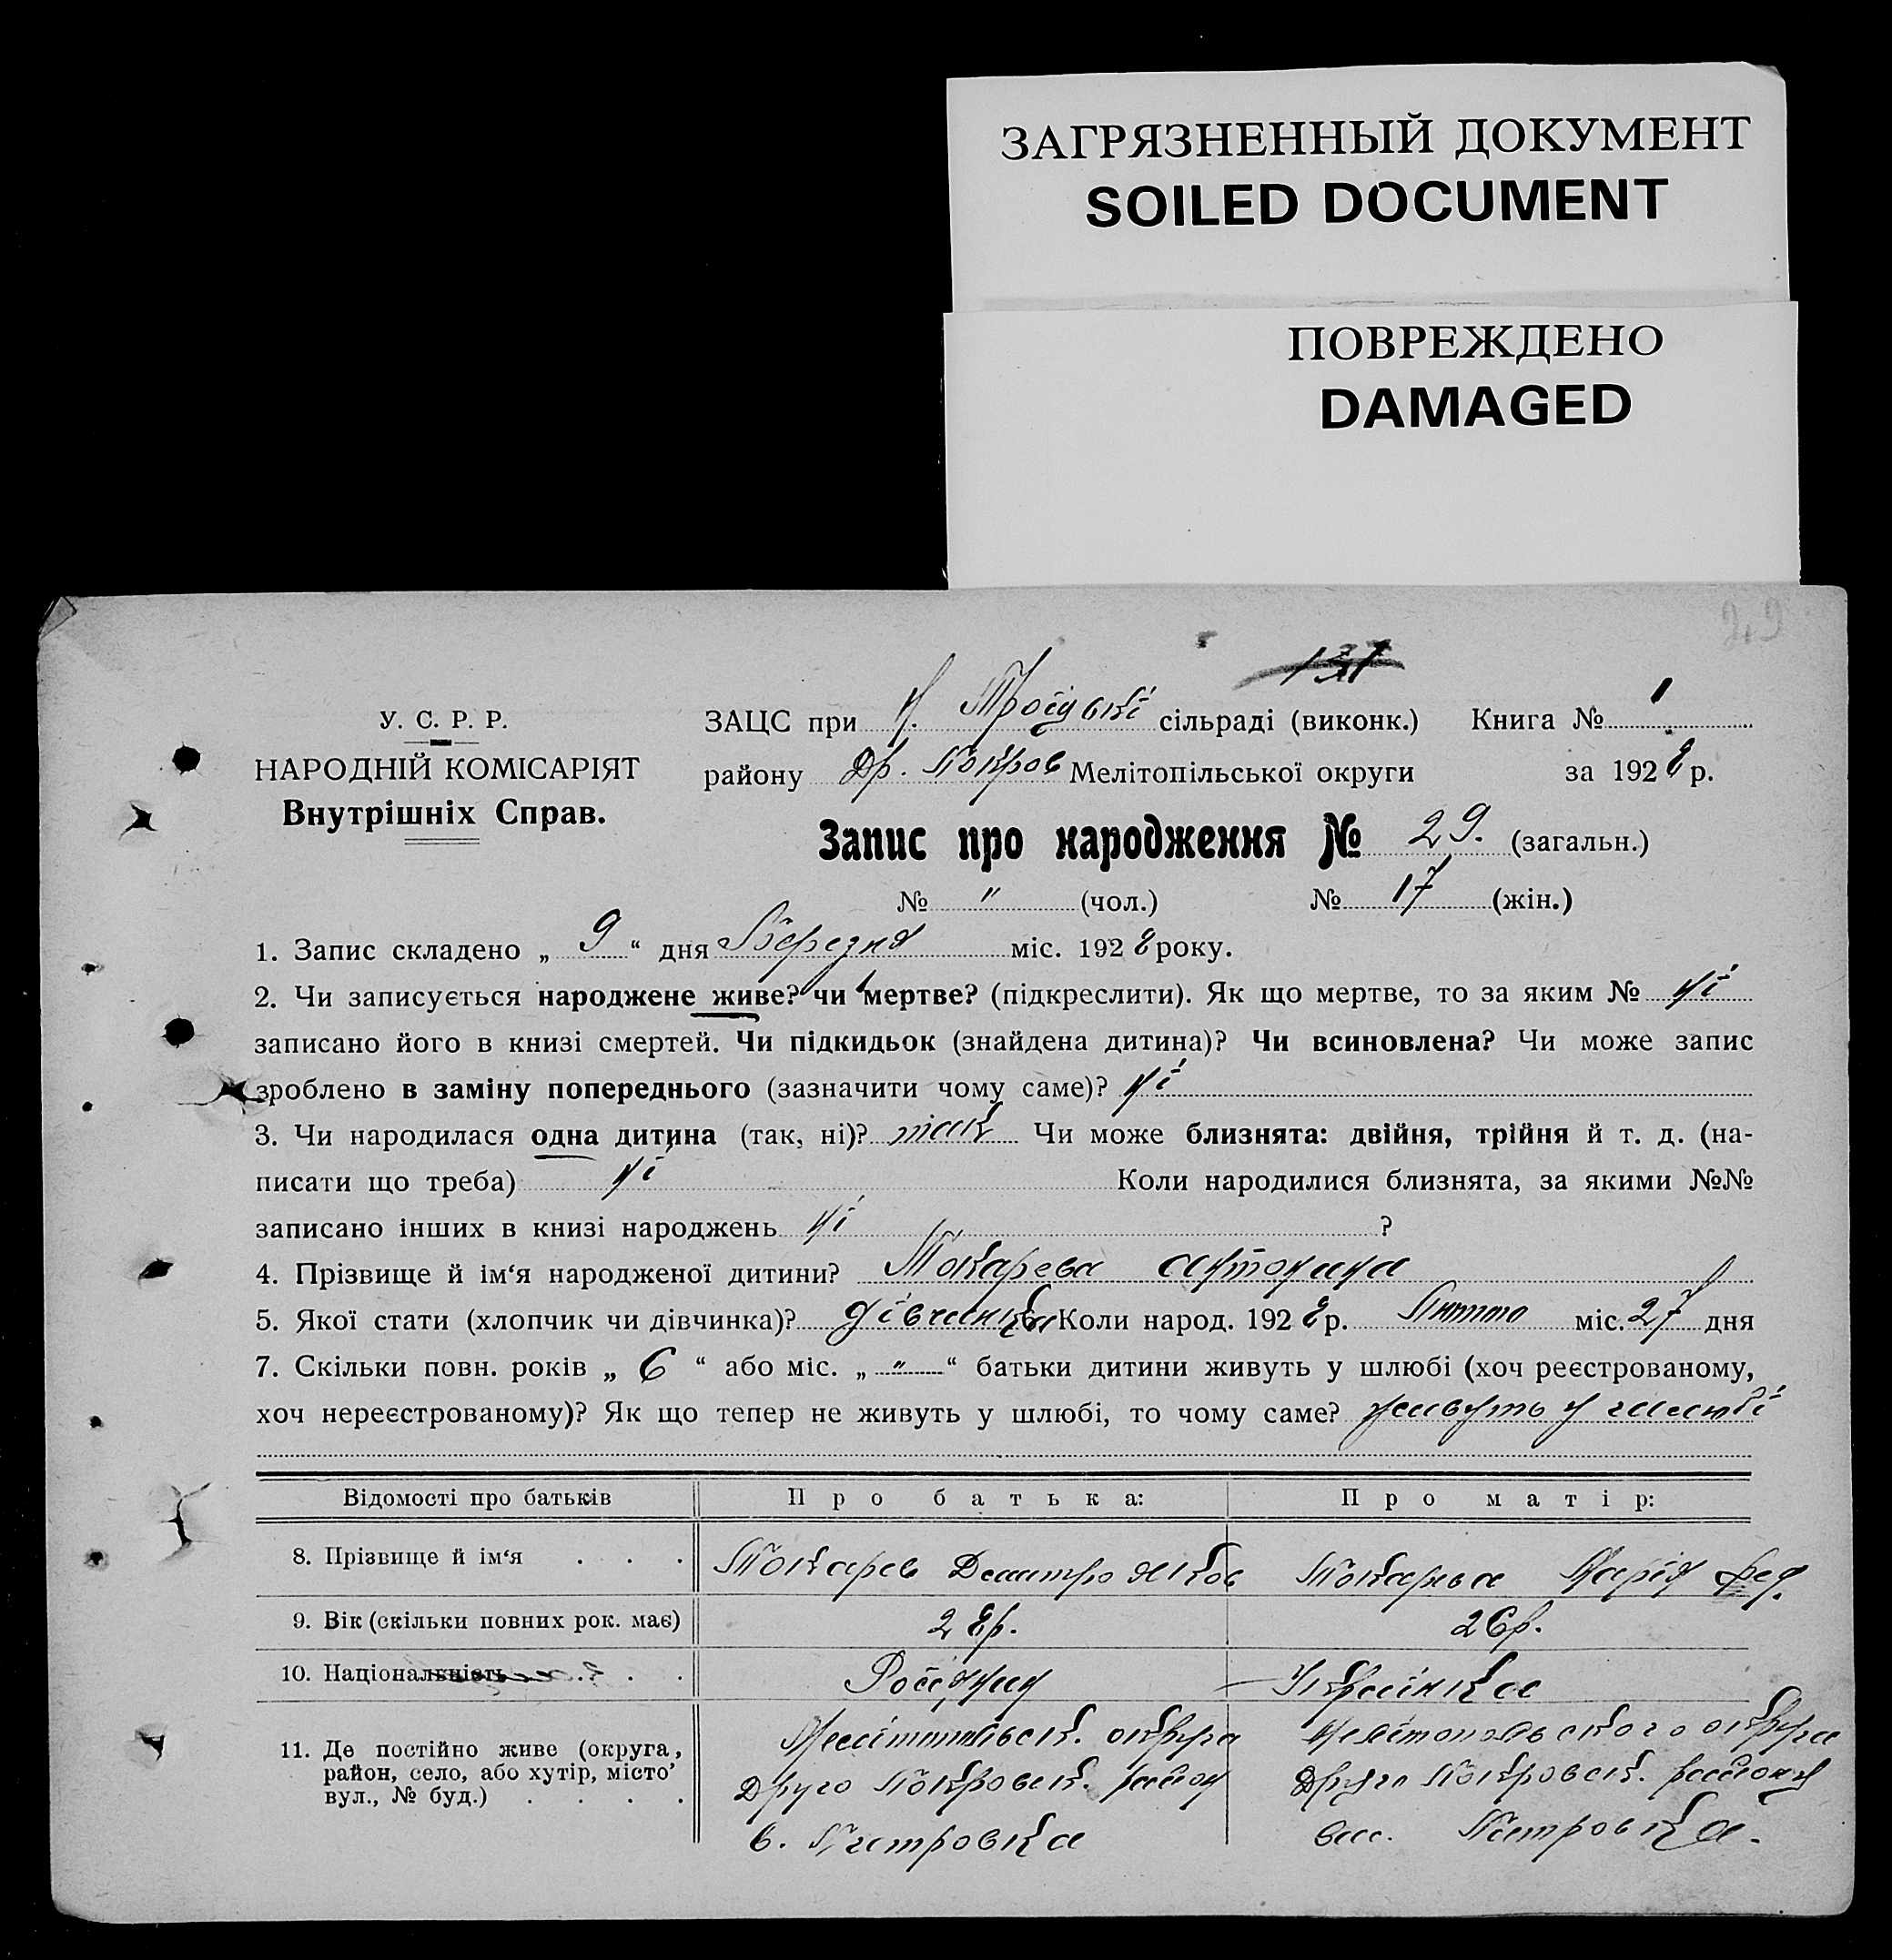 ЗАГРЯЗНЕННЫЙ ДОКУМЕНТ
SOILED DOCUMENT
ПОВРЕЖДЕНО
DAMAGED
29
У. С. Р. Р.
НАРОДНІЙ КОМІСАРІЯТ
Внутрішніх Справ.
ЗАЦС при Н. Троіцькі сільраді (виконк.) Книга № 1
району Др. Покров Мелітопільської округи за 1928 р.
Запис про народження № 29. (загальн.)
№ " (чол.) № 17 (жін.)
1. Запис складено „ 9 “ дня Березня міс. 1928 року.
2. Чи записується народжене живе? чи мертве? (підкреслити). Як що мертве, то за яким № ні
записано його в книзі смертей. Чи підкидьок (знайдена дитина)? Чи всиновлена? Чи може запис
зроблено в заміну попереднього (зазначити чому саме)? ні
3. Чи народилася одна дитина (так, ні)? так Чи може близнята: двійня, трійня й т. д. (на-
писати що треба) ні Коли народилися близнята, за якими №№
записано інших в книзі народжень ні ?
4. Прізвище й ім‘я народженої дитини? Токарева Антонина
5. Якої стати (хлопчик чи дівчинка)? дівчинка Коли народ. 1928 р. Лютого міс. 27 дня
7. Скільки повн. років „ 6 “ або міс. „ " “ батьки дитини живуть у шлюбі (хоч реєстрованому,
хоч нереєстрованому)? Як що тепер не живуть у шлюбі, то чому саме? живуть у шлюбі
Відомості про батьків Про батька: Про матір:
8. Прізвище й ім‘я . . . Токарев Дмитро Яков Токарева Марія Фед.
9. Вік (скільки повних рок. має) 28р. 26р.
10. Національність . . . Росіянин Українка
11. Де постійно живе (округа, район, село, або хутір, місто’ вул., № буд.) . . . .
Мелітопільськ. округа Мелітопольского округа
Друго Покровск. район Друго Покровск. району
с. Петровка сел. Петровка.